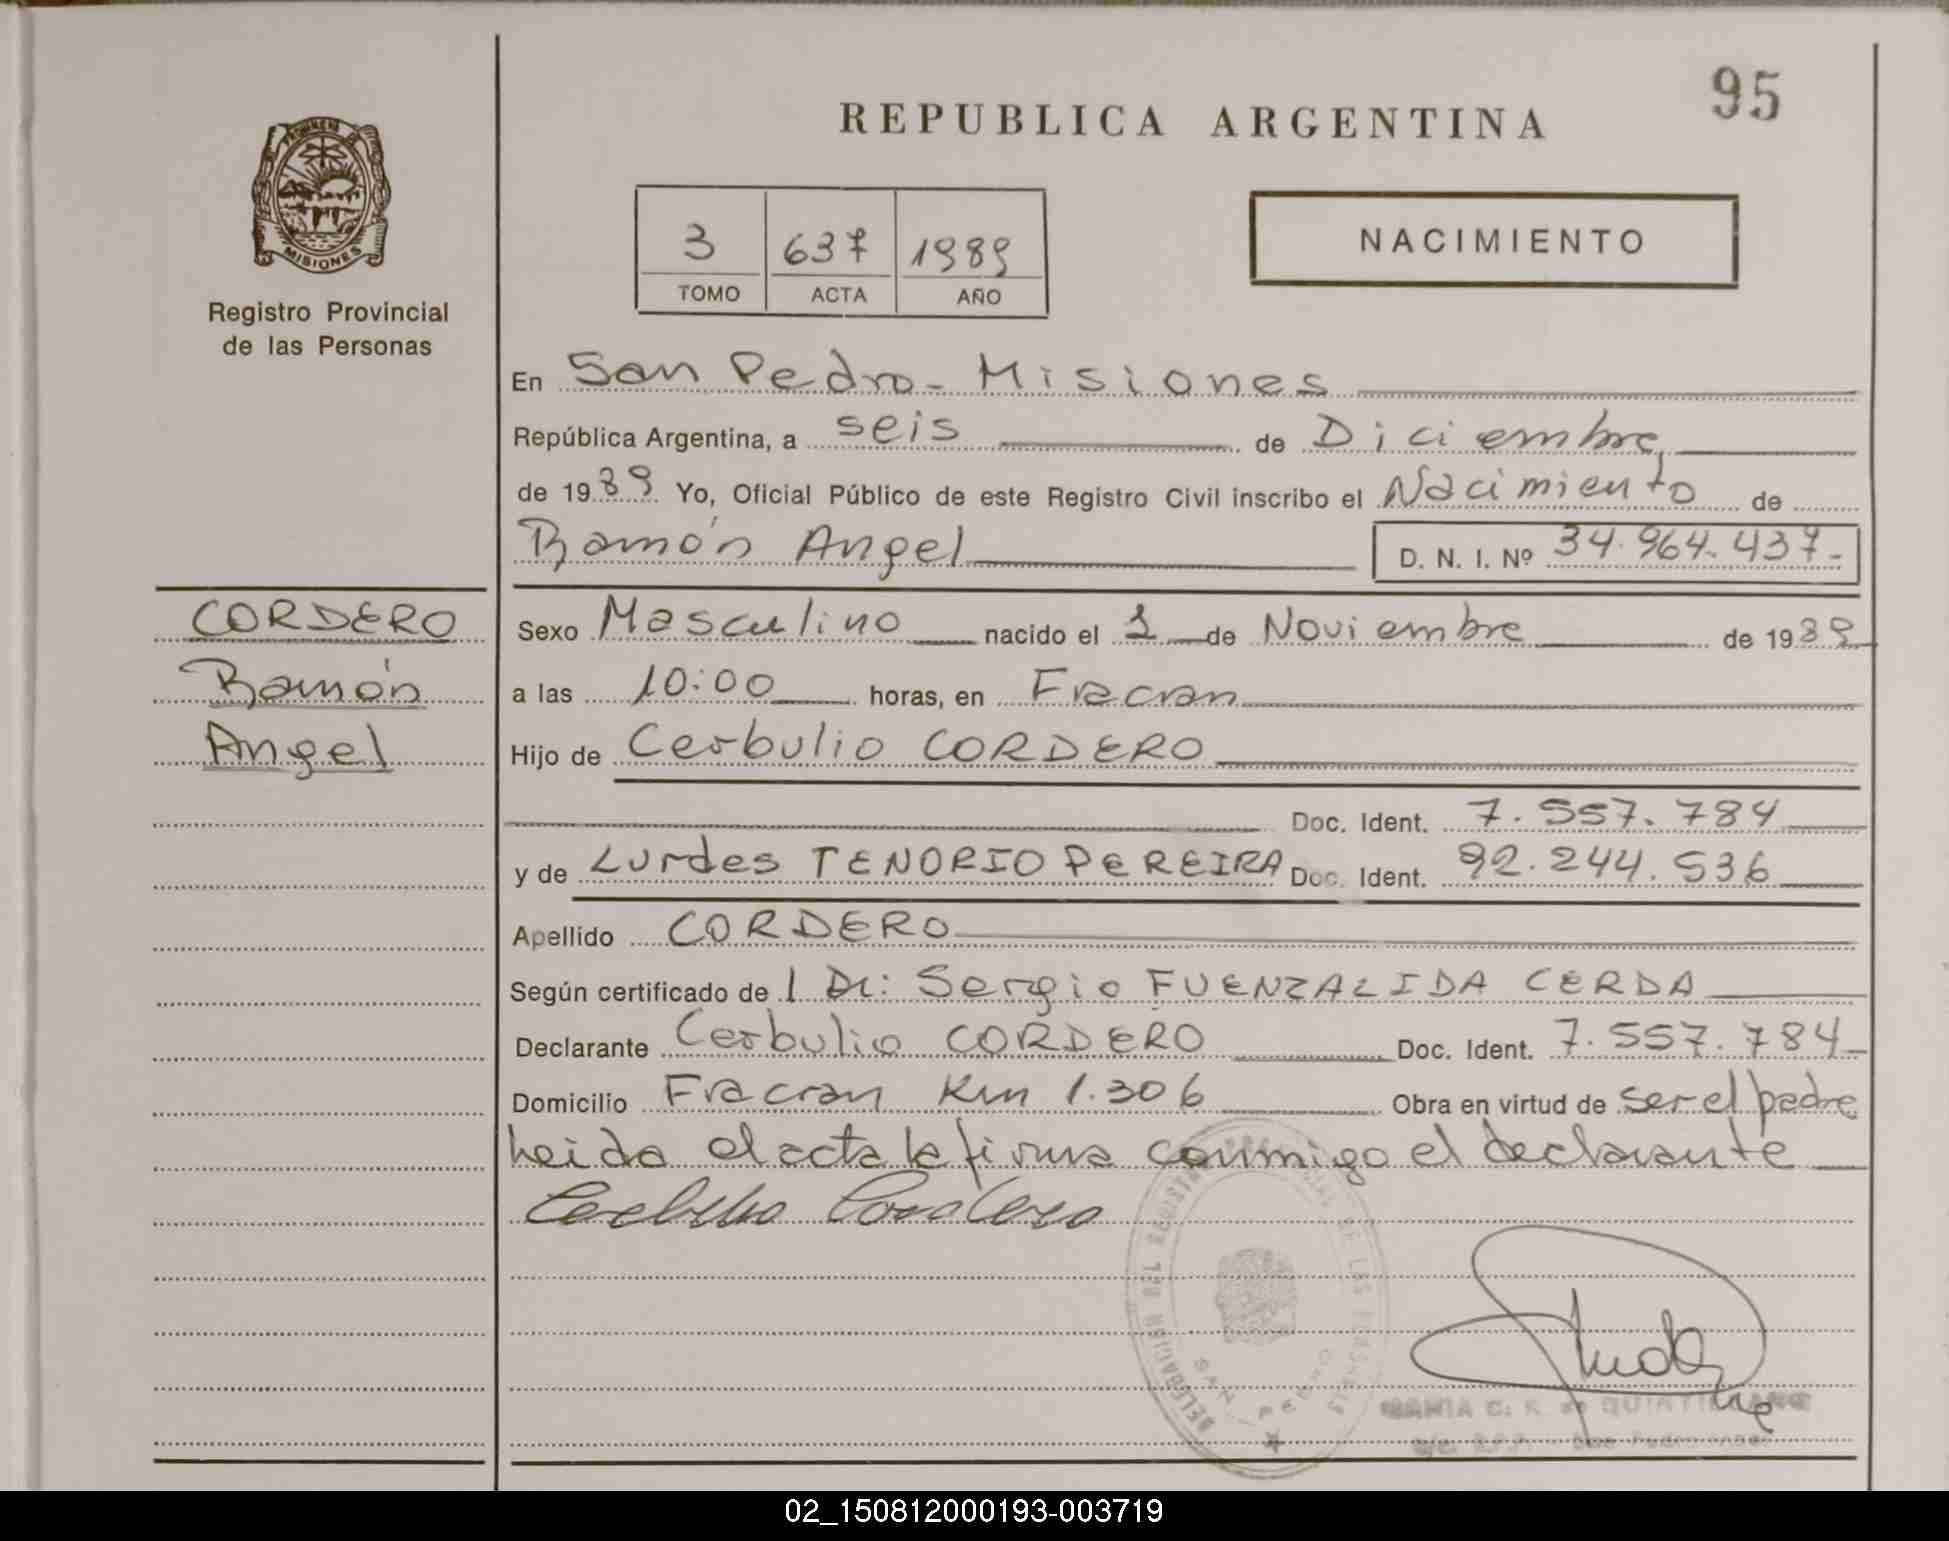 95
REPUBLICA ARGENTINA
PROVINCIA DE
MISIONES
Registro Provincial
de las Personas
3 637 1989
TOMO ACTA AÑO
NACIMIENTO
En San Pedro - Misiones
República Argentina, a seis de Diciembre
de 1989 Yo, Oficial Público de este Registro Civil inscribo el Nacimiento de
Ramón Angel D. N. I. Nº 34.964.437-
CORDERO
Ramón
Angel
Sexo Masculino nacido el 1 de Noviembre de 1989
a las 10:00 horas, en Fracran
Hijo de Cerbulio CORDERO
Doc. Ident. 7.557.784
y de Lurdes TENORIO PEREIRA Doc. Ident. 92.244.536
Apellido CORDERO
Según certificado de l Dr: Sergio FUENZALIDA CERDA
Declarante Cerbulio CORDERO Doc. Ident. 7.557.784
Domicilio Fracran Km 1.306 Obra en virtud de ser el padre
leida el acta la firma conmigo el declarante
Cerbulio Cordero
DELEGACION DEL REGISTRO PROVINCIAL DE LAS PERSONAS
SAN PEDRO
MARIA C. K. de QUINTILIANO
02_150812000193-003719